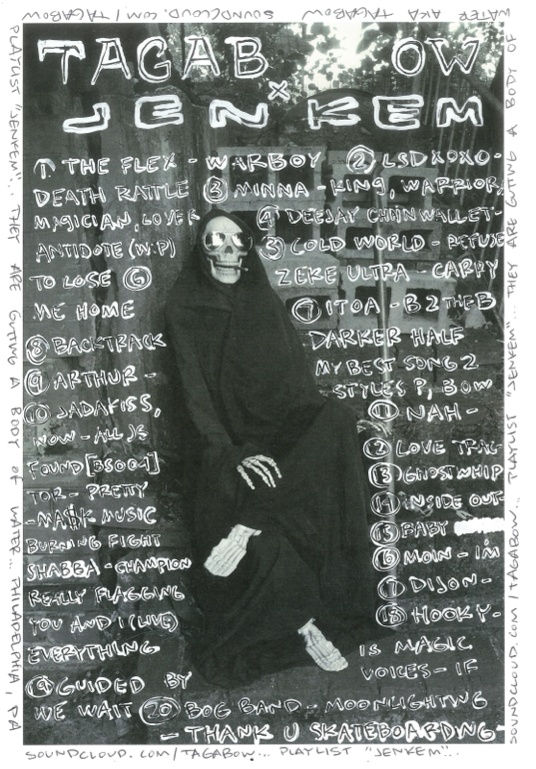 TAGAB OW
x
JENKEM
① THE FLEX - WARBOY ② LSDXOXO -
DEATH RATTLE ③ MINNA - KING, WARRIOR,
MAGICIAN, LOVER ④ DEEJAY CHAINWALLET -
ANTIDOTE (WIP) ⑤ COLD WORLD - REFUSE
TO LOSE ⑥ ZEKE ULTRA - CARRY
ME HOME ⑦ ITOA - B2THEB
⑧ BACKTRACK DARKER HALF
⑨ ARTHUR - MY BEST SONG 2
⑩ JADAKISS, STYLES P, BOW
WOW - ALL JS ⑪ NAH -
FOUND [BS004] ⑫ LOVE TRAG-
TOR - PRETTY ⑬ GHOSTWHIP
- MA$K MUSIC ⑭ INSIDE OUT -
BURNING FIGHT ⑮ BABY
SHABBA - CHAMPION ⑯ MOIN - IM
REALLY FLAGGING ⑰ DIJON -
YOU AND I (LIVE) ⑱ HOOKY -
EVERYTHING IS MAGIC
⑲ GUIDED BY VOICES - IF
WE WAIT ⑳ BOG BAND - MOONLIGHTING
- THANK U SKATEBOARDING
SOUNDCLOUD.COM/TAGABOW... PLAYLIST "JENKEM"...
PLAYLIST "JENKEM"... THEY ARE GUTTING A BODY OF WATER... PHILADELPHIA, PA
SOUNDCLOUD.COM/TAGABOW... PLAYLIST "JENKEM"... THEY ARE GUTTING A BODY OF
WATER AKA TAGABOW SOUNDCLOUD.COM/TAGABOW